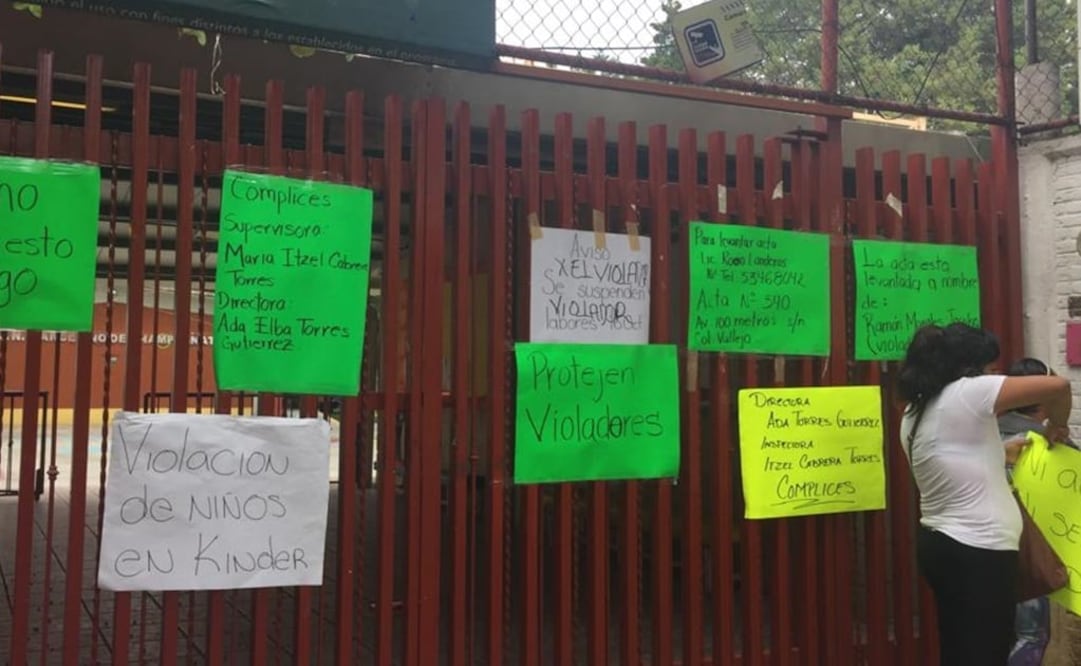 el uso con fines distintos a los establecidos en el
no
esto
go
Complices
Supervisora:
Maria Itzel Cabrera
Torres
Directora:
Ada Elba Torres
Gutierrez
Violacion
de NIÑOS
en Kinder
Aviso
X EL VIOLA
Se suspenden
VIOLADOR
labores
Protejen
Violadores
Para levantar acta
Lic. Rocio Landeros
Nº Tel. 53468042
Acta Nº 390
Av. 100 metros s/n
Col. Vallejo
DIRECTORA
ADA TORRES GUTIERREZ
INSPECTORA
ITZEL CABRERA TORRES
COMPLICES
La acta esta
levantada a nombre
de:
Ramón Morales